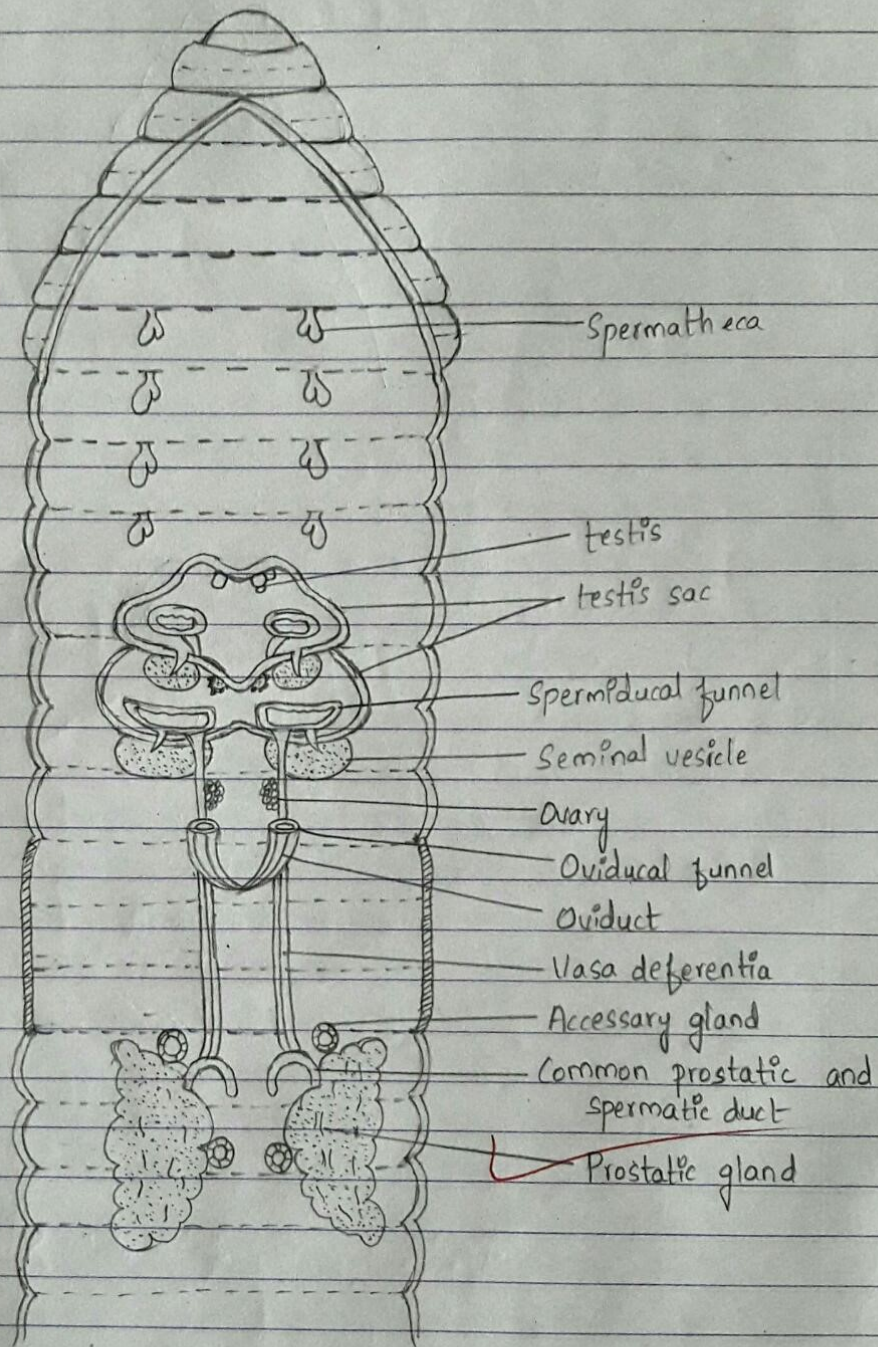 Spermatheca
testis
testis sac
Spermiducal funnel
Seminal vesicle
Ovary
Oviducal funnel
Oviduct
Vasa deferentia
Accessary gland
Common prostatic and
spermatic duct
Prostatic gland